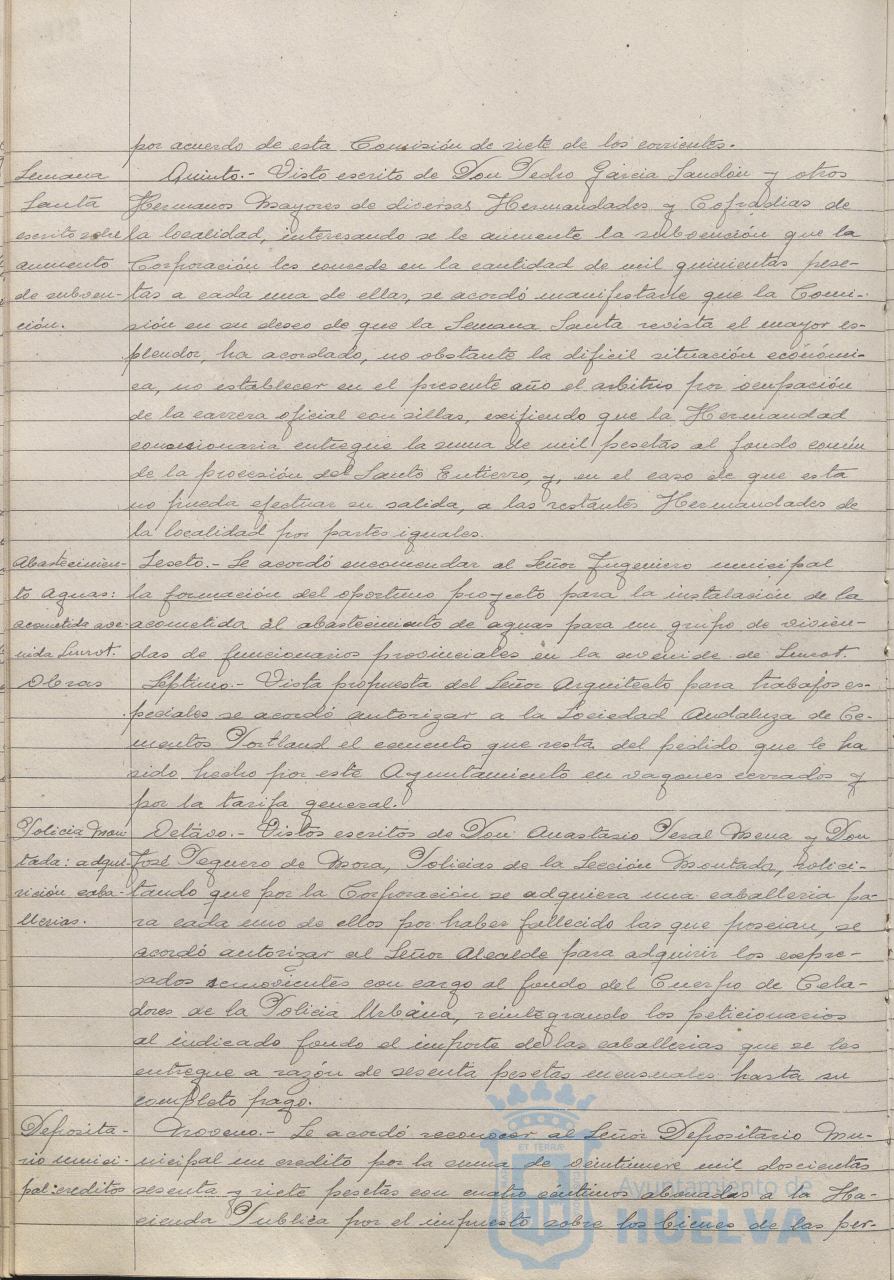 por acuerdo de esta Comisión de siete de los corrientes.
Semana
Santa
escrito sobre
aumento
de subven-
ción.
Quinto.- Visto escrito de Don Pedro García Sandón y otros
Hermanos Mayores de diversas Hermandades y Cofradias de
la localidad, interesando se le aumente la subvención que la
Corporación les concede en la cantidad de mil quinientas pese-
tas a cada una de ellas, se acordó manifestarle que la Comi-
sión en su deseo de que la Semana Santa revista el mayor es-
plendor, ha acordado, no obstante la dificil situación económi-
ca, no establecer en el presente año el arbitrio por ocupación
de la carrera oficial con sillas, exifiendo que la Hermandad
concesionaria entregue la suma de mil pesetas al fondo común
de la procesión del Santo Entierro, y, en el caso de que esta
no pueda efectuar su salida, a las restantes Hermandades de
la localidad por partes iguales.
Abastecimien-
to aguas:
acometida ave-
nida Surrot.
Sesto.- Se acordó encomendar al Señor Ingeniero municipal
la formación del oportuno proyecto para la instalación de la
acometida al abastecimiento de aguas para un grupo de vivien-
das de funcionarios provinciales en la avenida de Surrot.
Obras
Séptimo.- Vista propuesta del Señor Arquitecto para trabajos es-
peciales se acordó autorizar a la Sociedad Andaluza de Ce-
mentos Portland el cemento que resta del pedido que le ha
sido hecho por este Ayuntamiento en vagones cerrados y
por la tarifa general.
Policia Mon-
tada: adqui-
sición caba-
llerias.
Octavo.- Vistos escritos de Don Anastasio Peral Mena y Don
José Peguero de Mora, Policias de la Sección Montada, solici-
tando que por la Corporación se adquiera una caballeria pa-
ra cada uno de ellos por haber fallecido las que poseian, se
acordó autorizar al Señor Alcalde para adquirir los expre-
sados semovientes con cargo al fondo del Cuerpo de Cela-
dores de la Policia Urbana, reintegrando los peticionarios
al indicado fondo el importe de las caballerias que se les
entregue a razón de sesenta pesetas mensuales hasta su
completo pago.
Deposita-
rio munici-
pal: creditos
Noveno.- Se acordó reconocer al Señor Depositario Mu-
nicipal un credito por la suma de veintinueve mil doscientas
sesenta y siete pesetas con cuatro céntimos abonadas a la Ha-
cienda Publica por el impuesto sobre los bienes de las per-
ET TERRAE
Ayuntamiento de
HUELVA